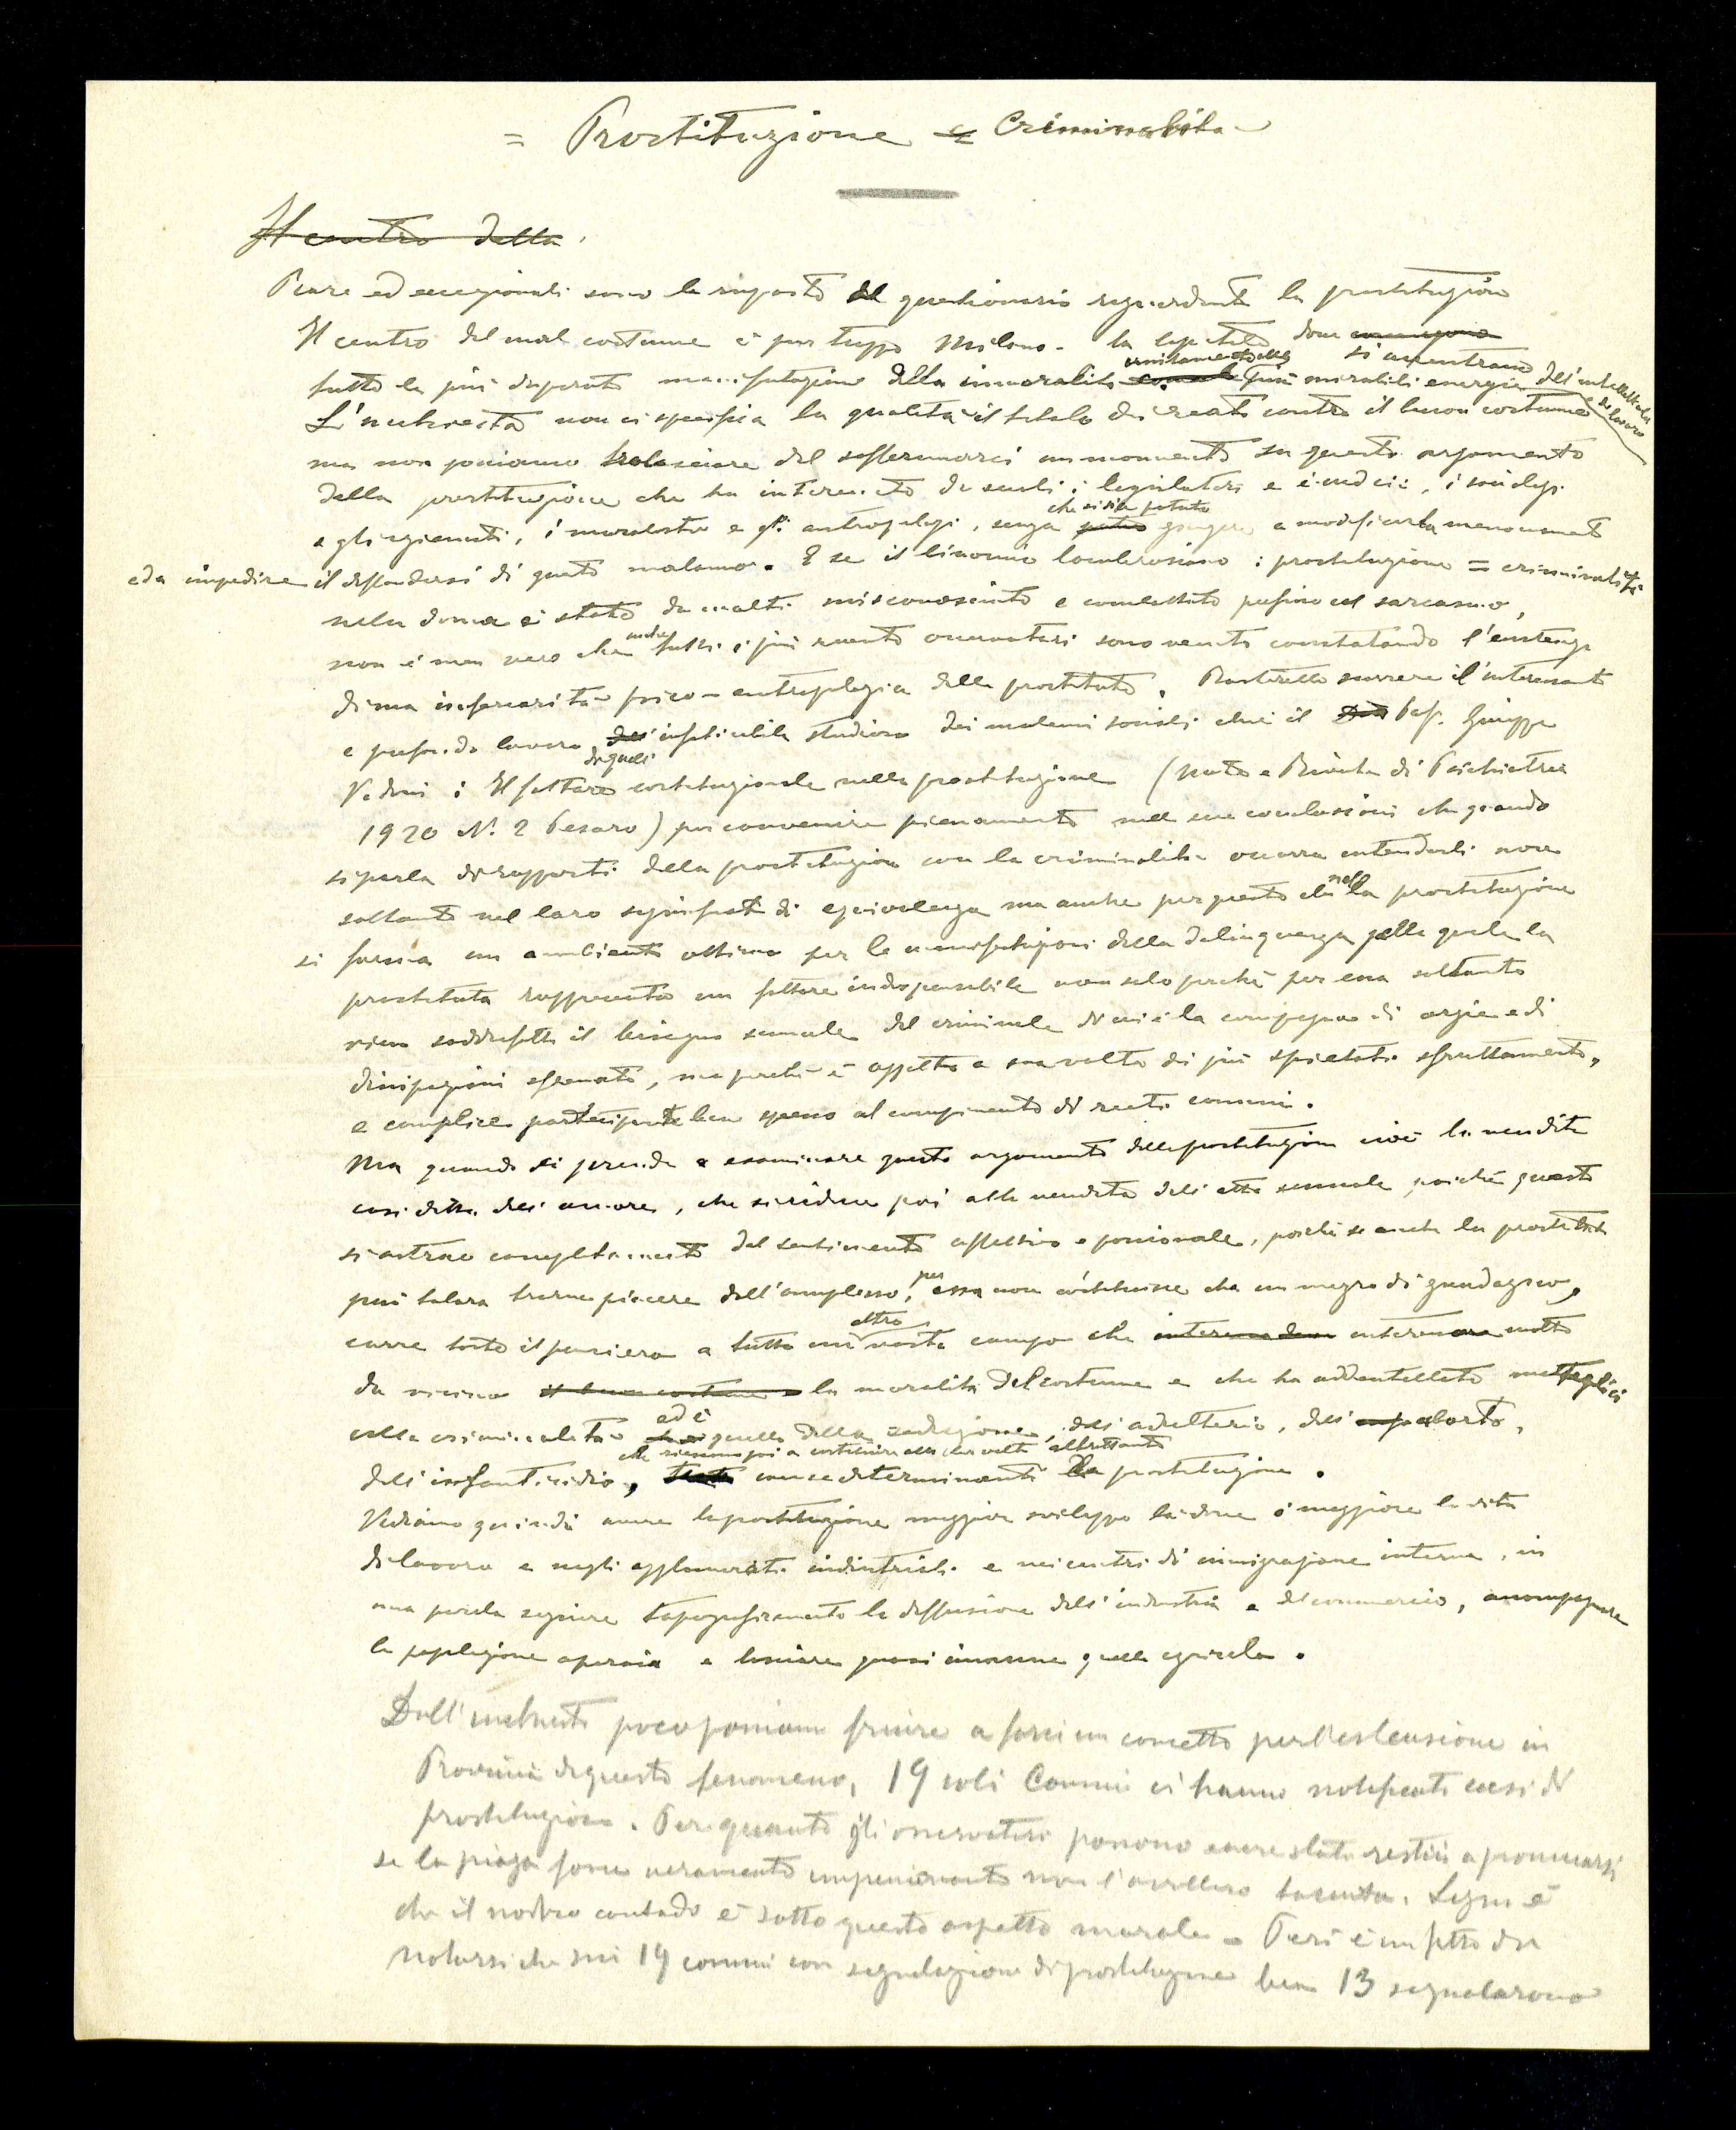 = Prostituzione e Criminalità
Il centro della
Rare ed eccezionali sono le risposte al questionario riguardante la prostituzione
Il centro del mal costume è pur troppo Milano - la capitale dove
si accentrano
tutte le più disperate manifestazioni della immoralità unitamente alle più mirabili energie dell'intelletto e del lavoro
L'inchiesta non ci specifica la qualità il titolo dei reati contro il buon costume
ma non possiamo tralasciare del soffermarci un momento su questo argomento
della prostituzione che ha interessato da secoli i legislatori e i medici, i sociologi
e gli igienisti, i moralisti e gli antropologi, senza che si sia potuto giungere a modificarla menomamente
ed a impedire il diffondersi di questo malanno. E se il binomio lombrosiano: prostituzione = criminalità
nella donna è stato da molti misconosciuto e combattuto persino col sarcasmo,
non è men vero che anche tutti i più recenti osservatori sono venuti constatando l'esistenza
di una inferiorità psico-antropologica della prostituta. Basterebbe scorrere l'interessante
e profondo lavoro di quell' infaticabile studioso dei malanni sociali che è il Prof. Giuseppe
Vidoni: Il fattore costituzionale nella prostituzione (Note e Riviste di Psichiatria
1920 N. 2 Pesaro) per convenire pienamente nelle sue conclusioni che quando
si parla di rapporti della prostituzione con la criminalità occorra intenderli non
soltanto nel loro significato di equivalenza ma anche per questo che nella prostituzione
si forma un ambiente ottimo per le manifestazioni della delinquenza nella quale la
prostituta rappresenta un fattore indispensabile non solo perché per essa soltanto
viene soddisfatto il bisogno sessuale del criminale di cui è la compagna di orgie e di
dissipazioni sfrenate, ma perché è oggetto a sua volta di più spietato sfruttamento,
e complice partecipante ben spesso al compimento di reati comuni.
Ma quando si prende a esaminare questo argomento della prostituzione cioè la vendita
così detta dell'amore, che si riduce poi alla vendita dell'atto sessuale poiché questo
si astrae completamente dal sentimento affettivo e passionale, poiché se anche la prostituta
può talora trarne piacere dall'amplesso, per essa non costituisce che un mezzo di guadagno,
corre tosto il pensiero a tutto un altro vasto campo che interessa molto
da vicino il buon costume la moralità del costume e che ha addentellato
colla criminalità ed è quello della seduzione, dell'adulterio, dell'aborto,
dell'infanticidio, che riescono poi a costituire alla lor volta altrettante cause determinanti la prostituzione.
Vediamo quindi avere la prostituzione maggior sviluppo laddove è maggiore la vita
di lavoro e negli agglomerati industriali e nei centri di immigrazione interna, in
una parola seguire topograficamente la diffusione dell'industria e del commercio, accompagnare
la popolazione operaia e lasciare quasi immune quella agricola.
Dall'inchiesta poco possiamo finire a farci un concetto per l'estensione in
Provincia di questo fenomeno, 19 soli Comuni ci hanno notificati casi di
prostituzione. Per quanto gli osservatori possono essere stati restii a pronunciarsi
se la piaga fosse veramente impressionante non l'avrebbero taciuta. Segno è
che il nostro contado è sotto questo aspetto morale - Però è un fatto da
notarsi che sui 19 comuni con segnalazione di prostituzione ben 13 segnalarono